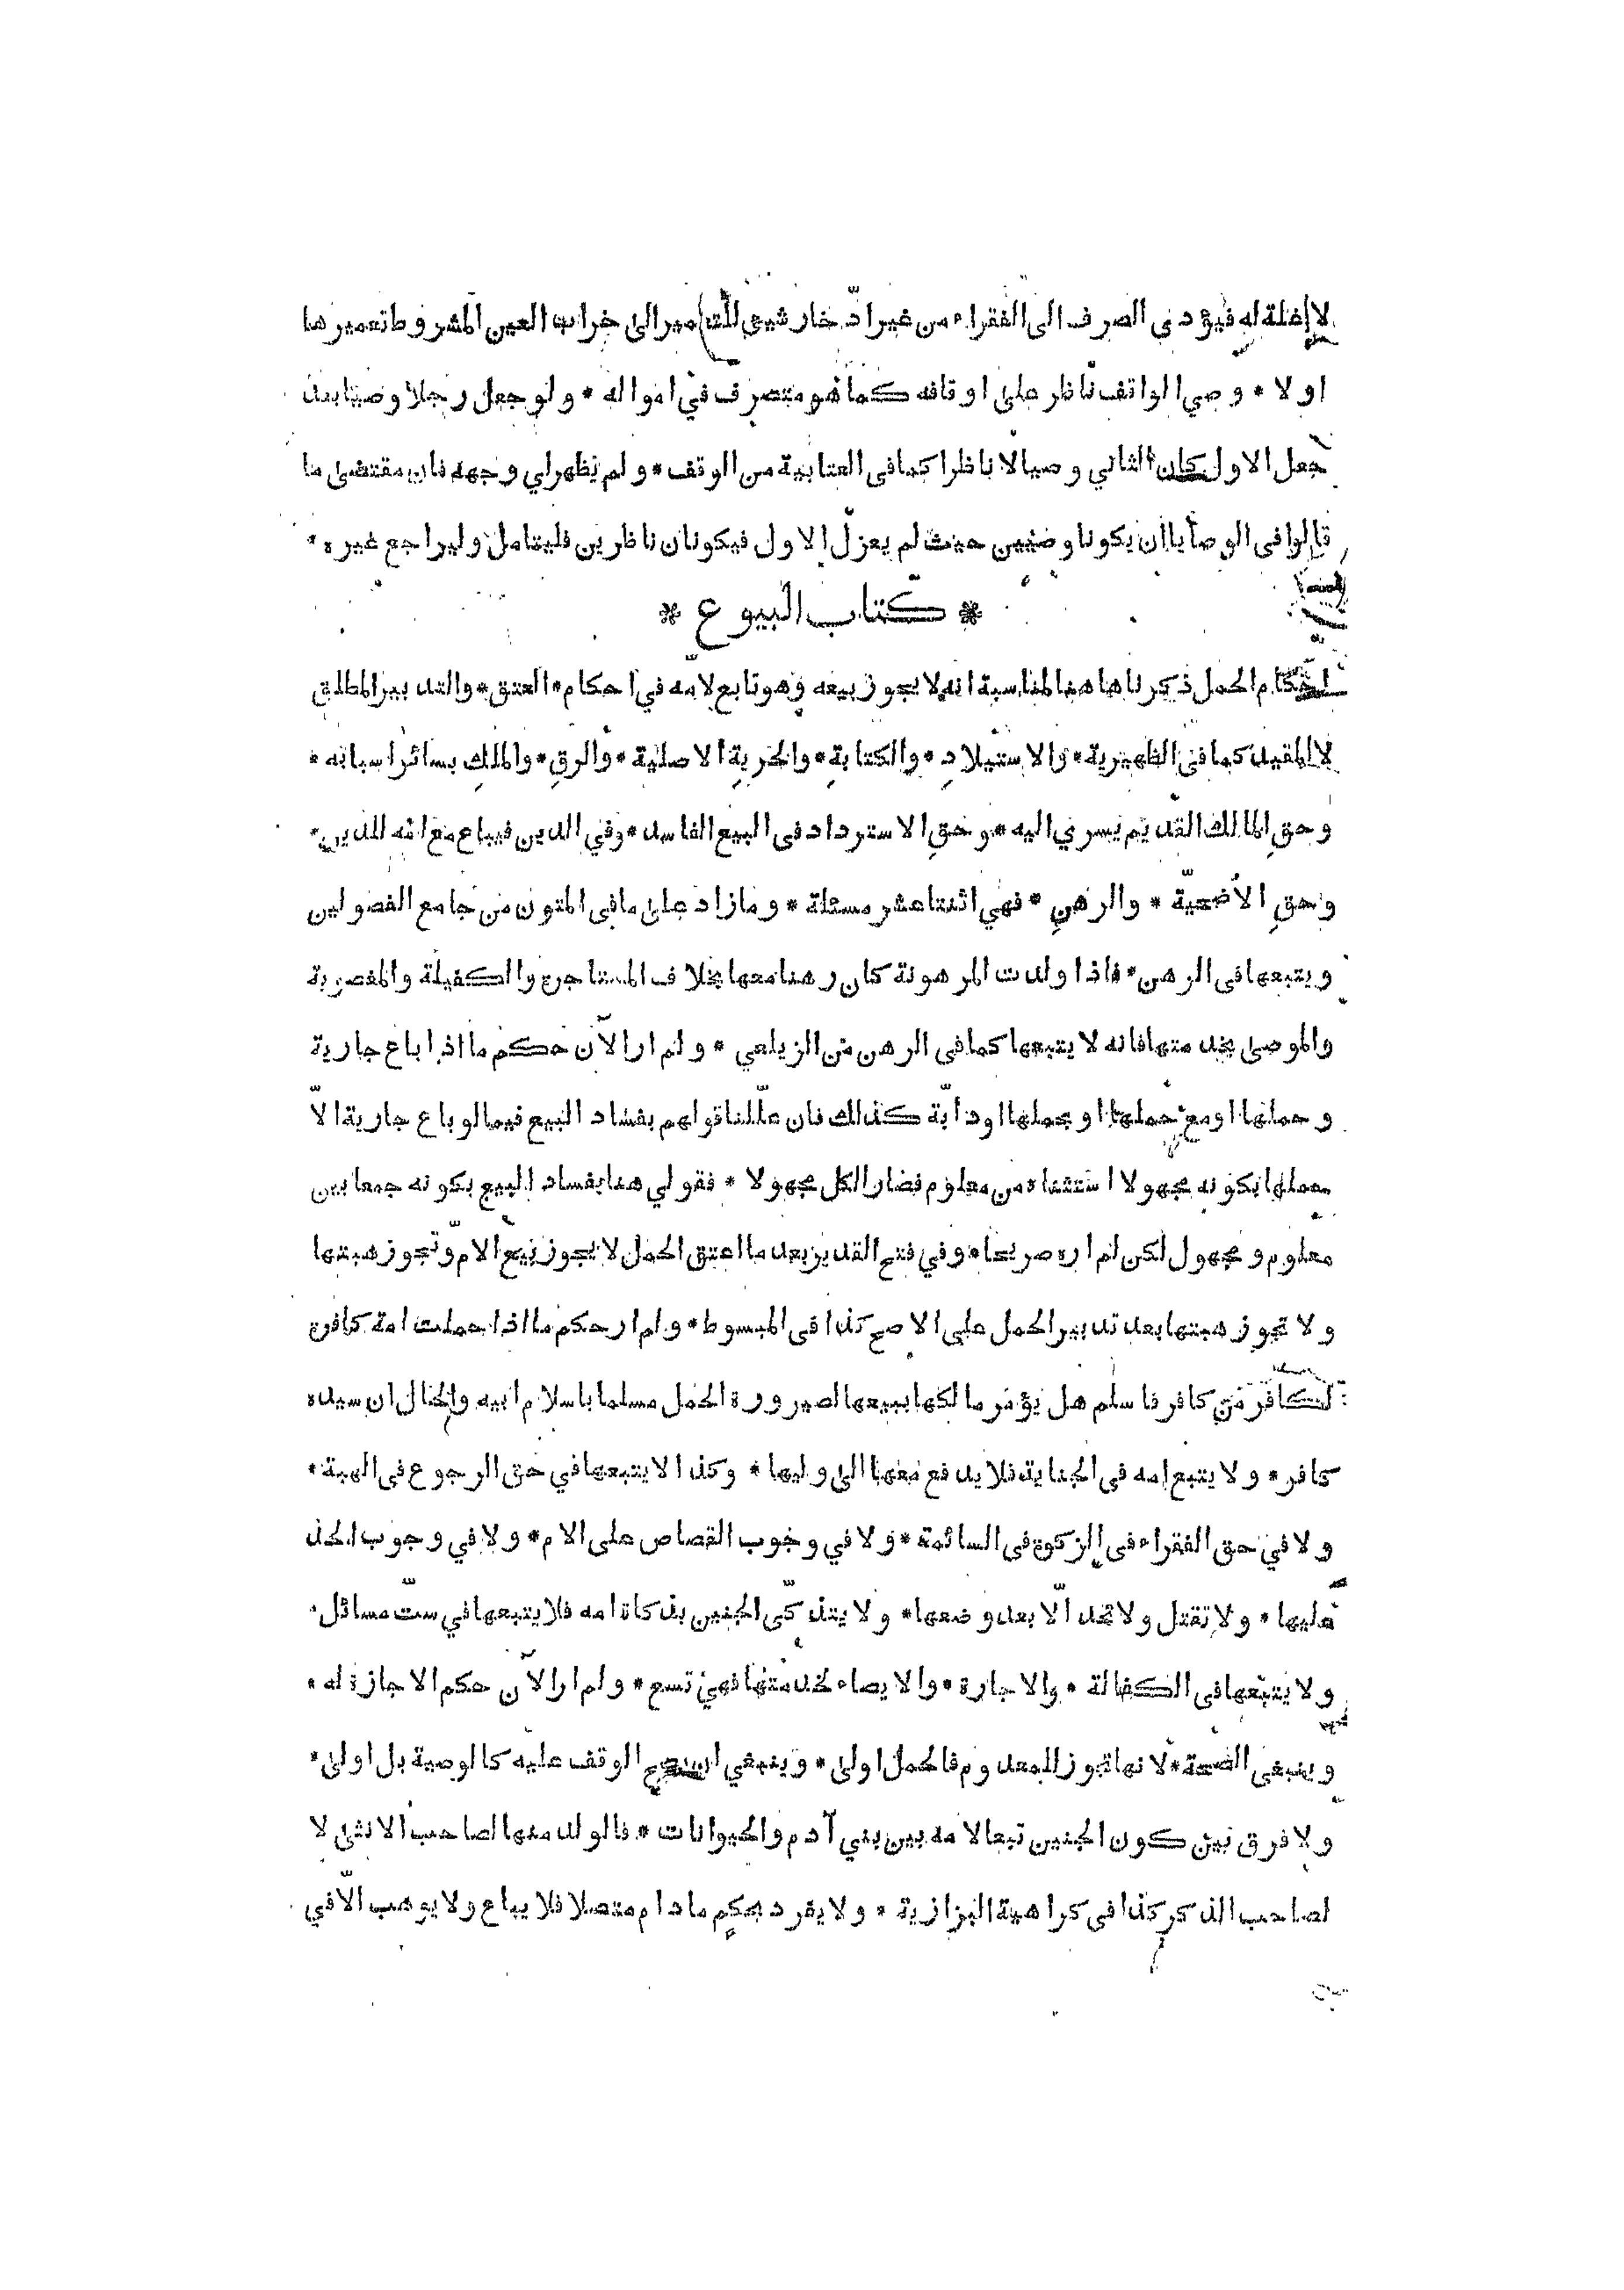 لا غلة له فيؤدى الصرف الى الفقراء من غير ادّخار شيئ للتعمير الى خراب العين المشروط تعميرها
اولا * وصي الواقف ناظر على اوقافه كما هو متصرف في امواله * ولو جعل رجلا وصيا بعد
جعل الاول كان الثاني وصيا لا ناظرا كما فى العتابية من الوقف * ولم يظهر لي وجهه فان مقتضى ما
قالوا فى الوصايا ان يكونا وصيين حيث لم يعزل الاول فيكونان ناظرين فليتامل وليراجع غيره *
* كتاب البيوع *
احكام الحمل ذكرناها هنا لمناسبة انه لا يجوز بيعه وهو تابع لامّه في احكام * العتق * والتدبير المطلق
لا المقيد كما فى الظهيرية * والاستيلادِ * والكتابةِ * والحريةِ الاصلية * والرقِ * والملكِ بسائر اسبابه *
وحقِ المالك القديم يسري اليه * وحقِ الاسترداد فى البيع الفاسد * وفي الدين فيباع مع امّه للدين *
وحقِ الاضحيّة * والرهنِ * فهي اثنتا عشر مسئلة * وما زاد على ما فى المتون من جامع الفصولين
ويتبعها فى الرهن * فاذا ولدت المرهونة كان رهنا معها بخلاف المستاجرة والكفيلة والمغصوبة
والموصى بخدمتها فانه لا يتبعها كما فى الرهن من الزيلعي * ولم ار الآن حكم ما اذا باع جارية
وحملها او مع حملها او بحملها او دابّة كذلك فان علّلنا قولهم بفساد البيع فيما لو باع جارية الّا
حملها بكونه مجهولا استثناء من معلوم فصار الكل مجهولا * فقولي هنا بفساد البيع بكونه جمعا بين
معلوم ومجهول لكن لم اره صريحا * وفي فتح القدير بعد ما اعتق الحمل لا يجوز بيع الامّ وتجوز هبتها
ولا تجوز هبتها بعد تدبير الحمل على الاصح كذا فى المبسوط * ولم ار حكم ما اذا حملت امة كافرة
لكافر من كافر فاسلم هل يؤمر مالكها ببيعها لصيرورة الحمل مسلما باسلام ابيه والحال ان سيده
كافر * ولا يتبع امه فى الجناية فلا يدفع معها الى وليها * وكذا لا يتبعها في حق الرجوع فى الهبة *
ولا في حق الفقراء فى الزكوة فى السائمة * ولا في وجوب القصاص على الام * ولا في وجوب الحد
عليها * ولا تقتل ولا تحد الّا بعد وضعها * ولا يتذكّى الجنين بذكاة امه فلا يتبعها في ستّ مسائل *
ولا يتبعها فى الكفالة * والاجارة * والايصاء لخدمتها فهي تسع * ولم ار الآن حكم الاجازة له *
وينبغى الصحة * لانها تجوز للمعدوم فالحمل اولى * وينبغي ان يصح الوقف عليه كالوصية بل اولى *
ولا فرق بين كون الجنين تبعا لامه بين بني آدم والحيوانات * فالولد منها لصاحب الانثى لا
لصاحب الذكر كذا فى كراهية البزازية * ولا يفرد بحكم ما دام متصلا فلا يباع ولا يوهب الّا في